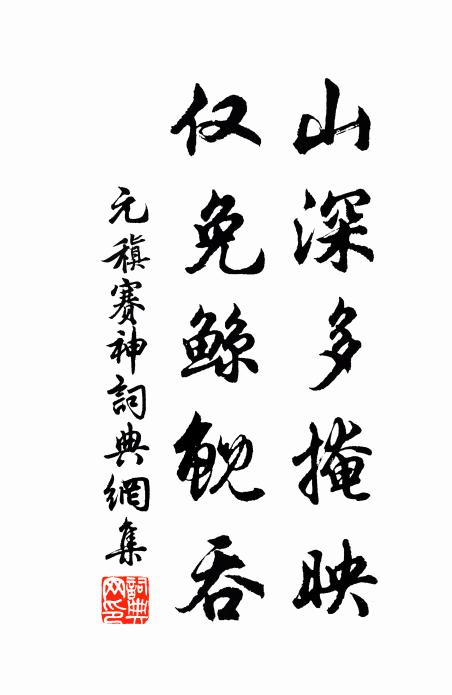 山深多掩映
仅免鲸鲵吞
元稹賽神詞典網集
詞典網印